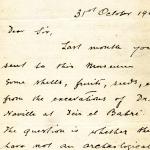 31st October 19
Dear Sir,
Last month you
sent to this Museum
some shells, fruits, seeds, e
from the excavations of Dr.
Naville at Deir el Bahri.
The question is whether th
have not an archaeological